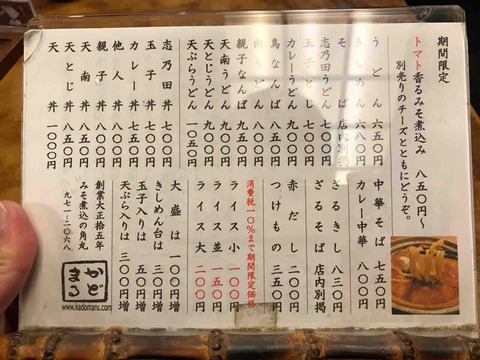 期間限定
トマト香るみそ煮込み 八五〇円〜
別売りのチーズとともにどうぞ。
うどん 六五〇円
そば 店内別掲
志乃田うどん 七〇〇円
玉子とじ 七〇〇円
カレーうどん 八〇〇円
鳥なんば 八〇〇円
肉うどん 八〇〇円
親子なんば 九〇〇円
天南うどん 九〇〇円
天とじうどん 九〇〇円
天ぷらうどん 一〇五〇円
志乃田丼 七〇〇円
玉子丼 七〇〇円
カレー丼 八五〇円
他人丼 八〇〇円
親子丼 八〇〇円
天南丼 八五〇円
天とじ丼 八五〇円
天丼 一〇〇〇円
中華そば 七五〇円
カレー中華 八〇〇円
ざるきし 八三〇円
ざるそば 店内別掲
赤だし 二〇〇円
つけもの 三五〇円
消費税10%まで期間限定価格
ライス小 一〇〇円
ライス並 一五〇円
ライス大 二〇〇円
大盛は 一〇〇円増
きしめん台は 一〇〇円増
玉子入りは 五〇円増
天ぷら入りは 三〇〇円増
創業大正十五年
みそ煮込の角丸
九七一-二〇六八
かどまる
www.kadomaru.com